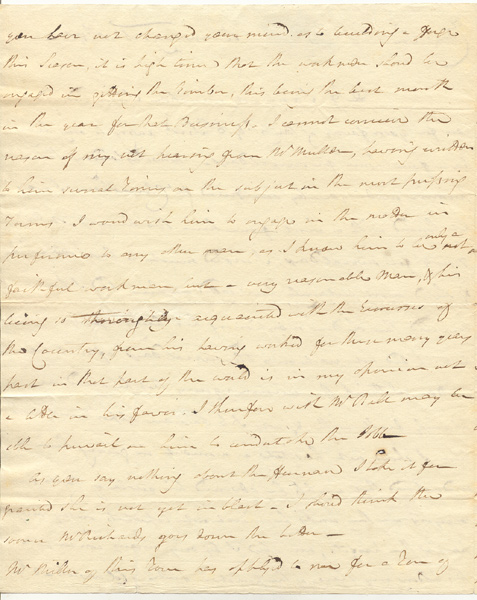 you have not changed your mind as to building a forge
this Season, it is high time that the workmen should be
engaged in getting the Timber, this being the best month
in the year for that Business. I cannot conceive the
reason of my not hearing from Mr Mullen, having written
to him several Times on the subject in the most pressing
Terms. I would wish him to engage in the matter in
preference to any other man, as I know him to be not only a
faithful workman but a very reasonable Man, & his
being so thoroughly acquainted with the Resources of
the Country, from his having worked for these many years
past in that part of the world is in my opinion not
a little in his favor. I therefore wish Mr Ball may be
able to prevail on him to undertake the Jobb
As you say nothing about the Furnace I take it for
granted she is not yet in blast - I should think the
sooner Mr Richards goes down the better -
Mr Miller of this Town has applied to me for a Ton of